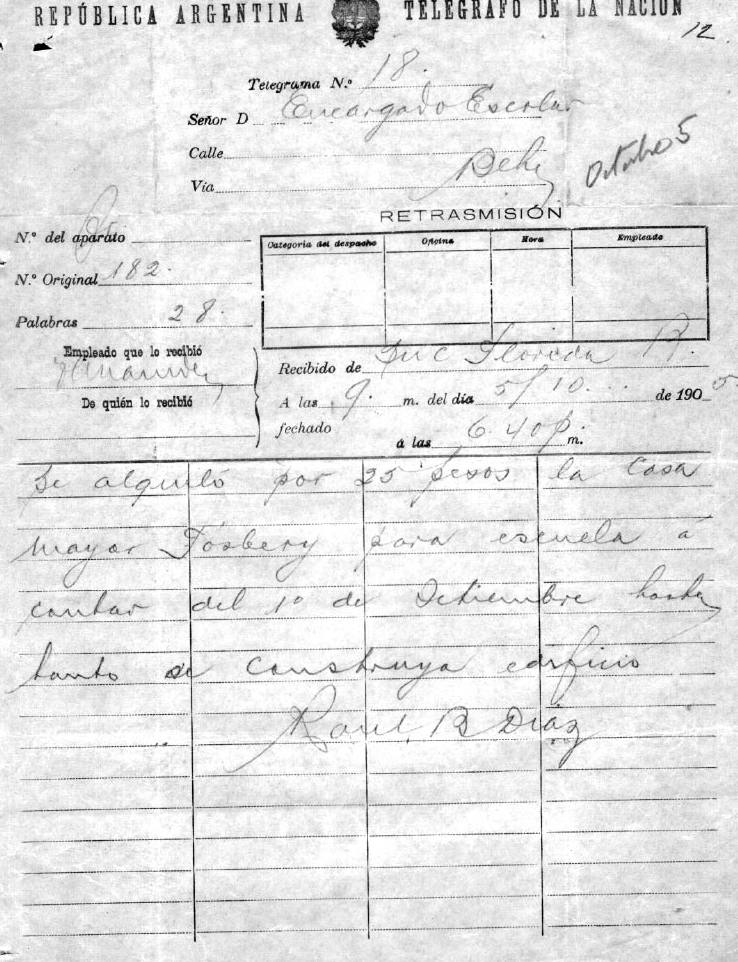 REPÚBLICA ARGENTINA TELÉGRAFO DE LA NACIÓN
12
Telegrama N.º 18.
Señor D Encargado Escolar
Calle
Octubre 5
Vía
RETRASMISIÓN
N.º del aparato
Categoría del despacho Oficina Hora Empleado
N.º Original 182.
Palabras 28.
Empleado que lo recibió
Recibido de Suc Florida
De quién lo recibió
A las 9. m. del día 5/10 de 1905.
fechado
á las 6.40 p m.
Se alquiló por 25 pesos la casa
mayor Fosbery para escuela á
contar del 1º de Setiembre hasta
tanto se construya edificio
Raul B Díaz